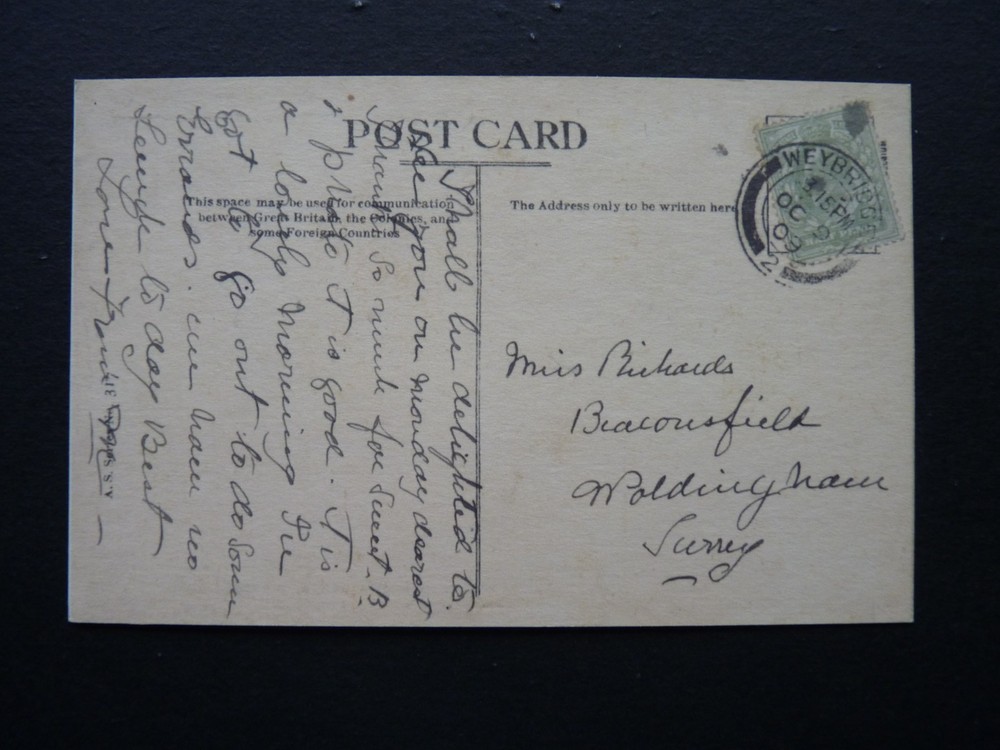 POST CARD
This space may be used for communication
between Great Britain, the Colonies, and
some Foreign Countries
The Address only to be written here
WEYBRIDGE
3.15PM
OC 9
09
2
Miss Richards
Beaconsfield
Woldingham
Surrey
I shall be delighted to
see you on Monday dearest
Thanks so much for sweet B
& photo it is good. It is
a lovely morning I've
got to go out to do some
Errands. can have no
length to day Best
Love